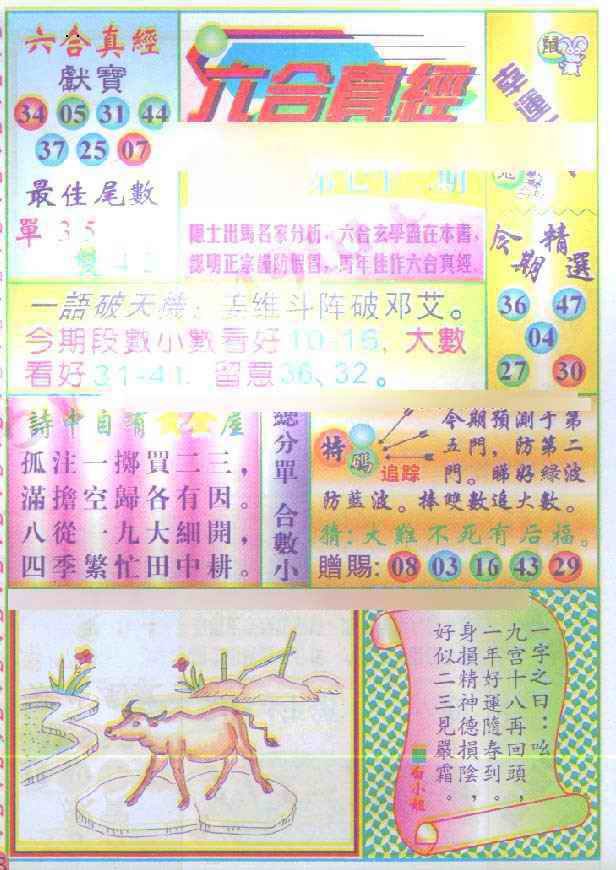 六合真經
獻寶
34 05 31 44
37 25 07
最佳尾數
單 3 5
六合真經
鼠
隱士出馬名家分析，六合玄學盡在本書，
認明正宗謹防假冒，馬年佳作六合真經
今期精選
36 47
04
27 30
一語破天機：姜维斗阵破邓艾。
今期段數小數看好10-15，大數
看好31-41，留意36、32。
詩中自有
孤注一擲買二三，
滿擔空歸各有因。
八從一九大細開，
四季繁忙田中耕。
總分單 合數小
特碼追踪
今期預測于第
五門，防第二
門。睇好綠波
防藍波。捧雙數追大數。
猜：大難不死有后福。
贈賜：08 03 16 43 29
一字之曰：吆
九宫十八再回頭，
一年好運隨春到。
身損精神德損陰，
好似二三見嚴霜。
白小姐